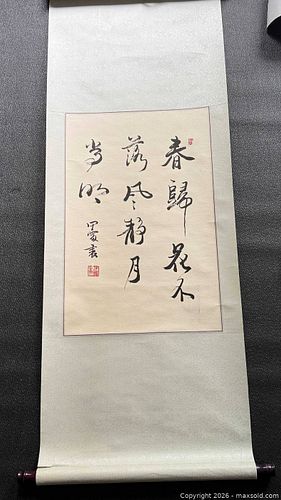 春歸花不
落風靜月
常明
書
Copyright © 2026 - maxsold.com